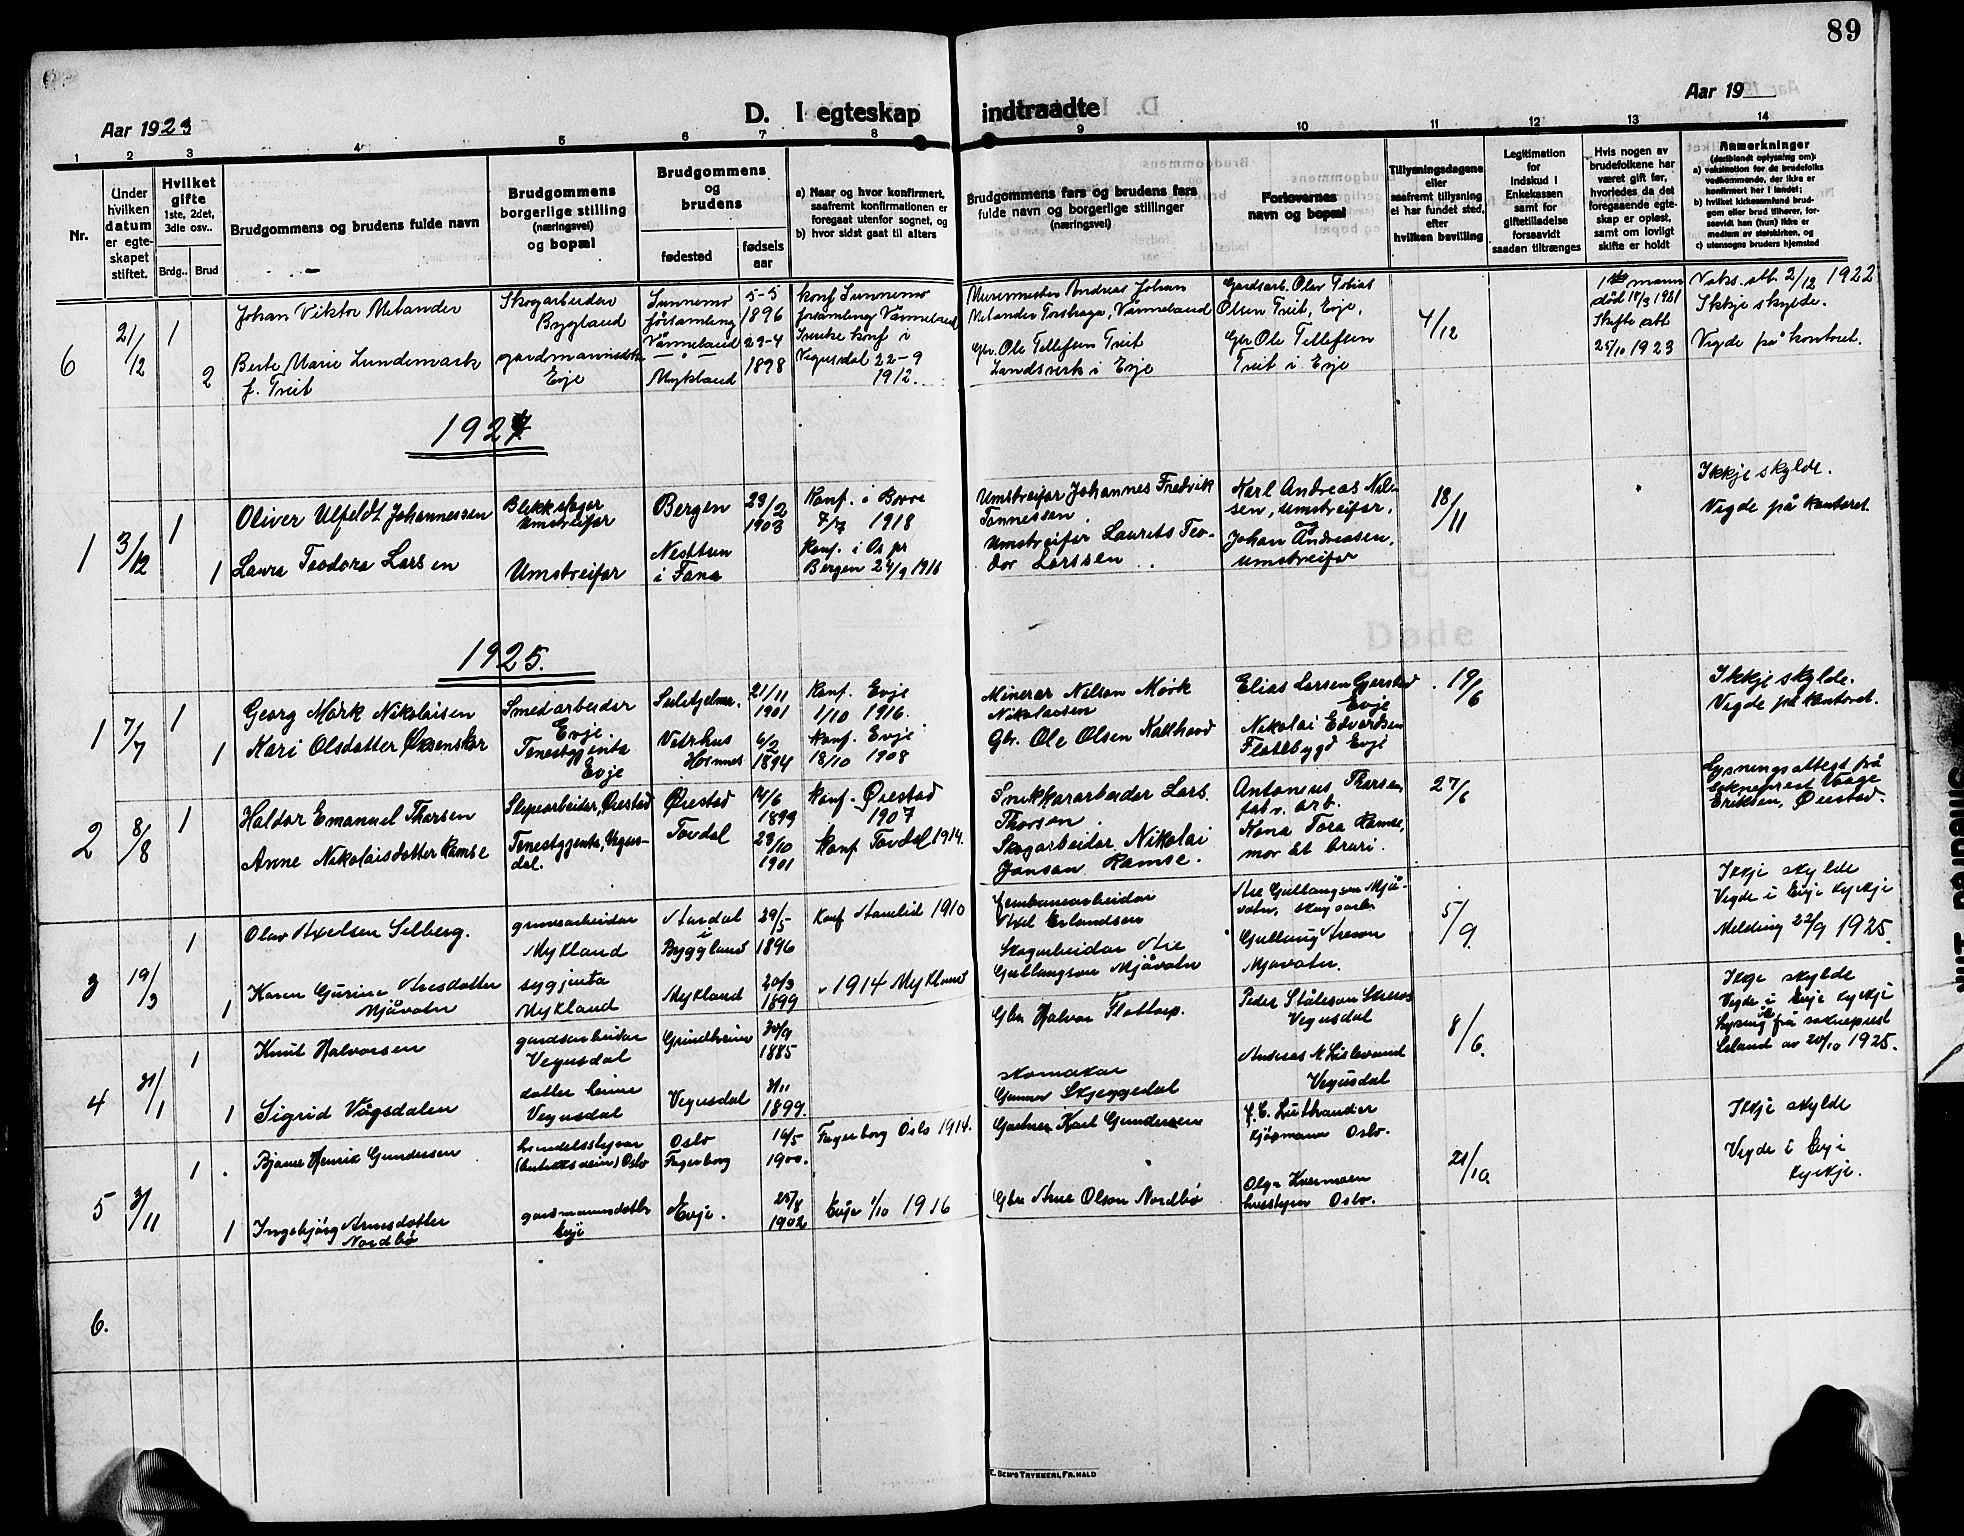 89
D. I egteskap indtraadte
Aar 1923
Aar 19
1 2 3 4 5 6 7 8 9 10 11 12 13 14
Nr.
Under hvilken datum er egteskapet stiftet.
Hvilket gifte 1ste, 2det, 3die osv..
Brdg.. Brud
Brudgommens og brudens fulde navn
Brudgommens borgerlige stilling (næringsvei) og bopæl
Brudgommens og brudens
fødested
fødsels aar
a) Naar og hvor konfirmert, saafremt konfirmationen er foregaat utenfor sognet, og
b) hvor sidst gaat til alters
Brudgommens fars og brudens fars fulde navn og borgerlige stillinger (næringsvei)
Forlovernes navn og bopæl
Tillysningsdagene eller saafremt tillysning ei har fundet sted, efter hvilken bevilling
Legitimation for indskud i Enkekassen samt for giftetilladelse forsaavidt saadan tiltrænges
Hvis nogen av brudefolkene har været gift før, hvorledes da det foregaaende egteskap er opløst, samt om lovligt skifte er holdt
Anmerkninger
(deriblandt oplysning om):
a) vaksination for de brudefolks vedkommende, der ikke er konfirmert her i landet;
b) hvilket kirkesamfund brudgom eller brud tilhører, forsaavidt han (hun) ikke er medlem av statskirken, og
c) utensogns bruders hjemsted
6
21/12
1
Johan Viktor Melander
Skogarbeider
Bygland
Sunnemo
församling
Värmeland
5-5
1896
konf Sunnemo
forsamling Värmeland
Murermester Andreas Johan
Melander Torshaga, Värmeland
Gardsarb. Olav Tobias
Olsen Treit, Evje,
4/12
1ste mann
død 18/3 1921
Skifte att
25/10 1923
Vaks. att. 2/12 1922
Ikkje skylde.
Vigde på kontoret.
2
Berte Marie Lundemark
f. Treit
gardmannsdotter
Evje
Mykland
29-4
1898
konf i
Vegusdal 22-9
1912.
Gbr. Ole Tellefsen Treit
Landsverk i Evje
Gbr Ole Tellefsen
Treit i Evje
1924
1
3/12
1
Oliver Ulfeldt Johannessen
Blekkslager
Umstreifar
Bergen
29/2
1903
Konf. i Borre
7/7 1918
Umstreifar Johannes Fredrik
Tonnessen.
Karl Andreas Nilsen, umstreifar,
og
18/11
Ikkje skylde.
Vigde på kontoret.
1
Laura Teodora Larsen
Umstreifar
Nesttun
i Fana
Konf. i Os pr
Bergen 24/9 1916
Umstreifar Laurits Teodor Larssen
Johan Andreasen,
umstreifar
1925.
1
7/7
1
Georg Mørk Nikolaisen
Smedarbeider
Evje.
Sulitjelma.
21/11
1901
Konf. Evje
1/10 1916.
Minerar Nelson Mørk
Nikolaisen
Elias Larsen Gjerstad
Evje
19/6
Ikkje skylde.
Vigde på kontoret.
1
Kari Olsdatter Øksenskar
Tenestgjenta
Evje
Hornnes
6/2
1894
Konf. Evje
18/10 1908
Gbr. Ole Olsen
Nikolai Edvardsen
Flatebygd Evje
2
8/8
1
Haldor Emanuel Tharsen
Slipearbeider, Øiestad
Øiestad
14/6
1899
Konf. Øiestad
1907
Snikkararbeider Lars.
Thorsen.
Antonius Tharsen
fabr. arb.
27/6
Lysningsattest frå
sokneprest Vaage
Eriksen, Øiestad.
Anne Nikolaisdatter Ramse
Tenestgjenta, Vegusdal.
Tovdal
29/10
1901
Konf Tovdal 1914.
Skogarbeidar Nikolai
Jansan Ramse.
Kona Tora Ramse,
mor åt bruri.
3
19/3
1
Olav Axelsen Selberg.
gruvearbeidar
Mykland
Aardal
i
Bygland
29/5
1896
Konf Aamlid 1910
Axel Erlandsen
Are Gullangson Mjåvatn, skogarb.
5/9
Ikkje skylde
Vigde i Evje kyrkje
Melding 22/9 1925.
1
Karen Gurine Aresdotter
Mjåvatn
sygjenta
Mykland
Mykland
20/3
1899
" 1914 Mykland
Skogarbeidar Are
Gullangson Mjåvatn
Gullang Areson
Mjåvatn.
4
31/1
1
Knut Halvorsen
gardsarbeidar
Vegusdal
Grindheim
30/9
1885
Gbr Halvor Flottorp.
Peder Ståleson
Vegusdal
8/6.
Ikkje skylde
Vigde i Evje kyrkje
Lysing frå sokneprest
Leland av 20/10 1925.
1
Sigrid Vågsdalen
dotter heime
Vegusdal
Vegusdal
3/11
1899.
skomakar
Gunnar Skjeggedal
Andreas N. Lislevand
Vegusdal
5
3/11
1
Bjarne Henrik Gundersen
handelsstyrar
Oslo
Oslo
Fagerborg
16/5
1900.
Fagerborg Oslo 1914.
Gartner Karl Gundersen
kjøpmann Oslo.
21/10
Ikkje skylde
Vigde i Evje
kyrkje.
1
Ingebjørg Arnesdotter
Nordbø
gardmannsdotter
Evje
Evje.
25/8
1902
Evje 1/10 1916
Gbr Arne Olson Nordbø
Olga Kvermoen
husstyrar Oslo.
6.
E. SEM'S TRYKKERI, FR.HALD